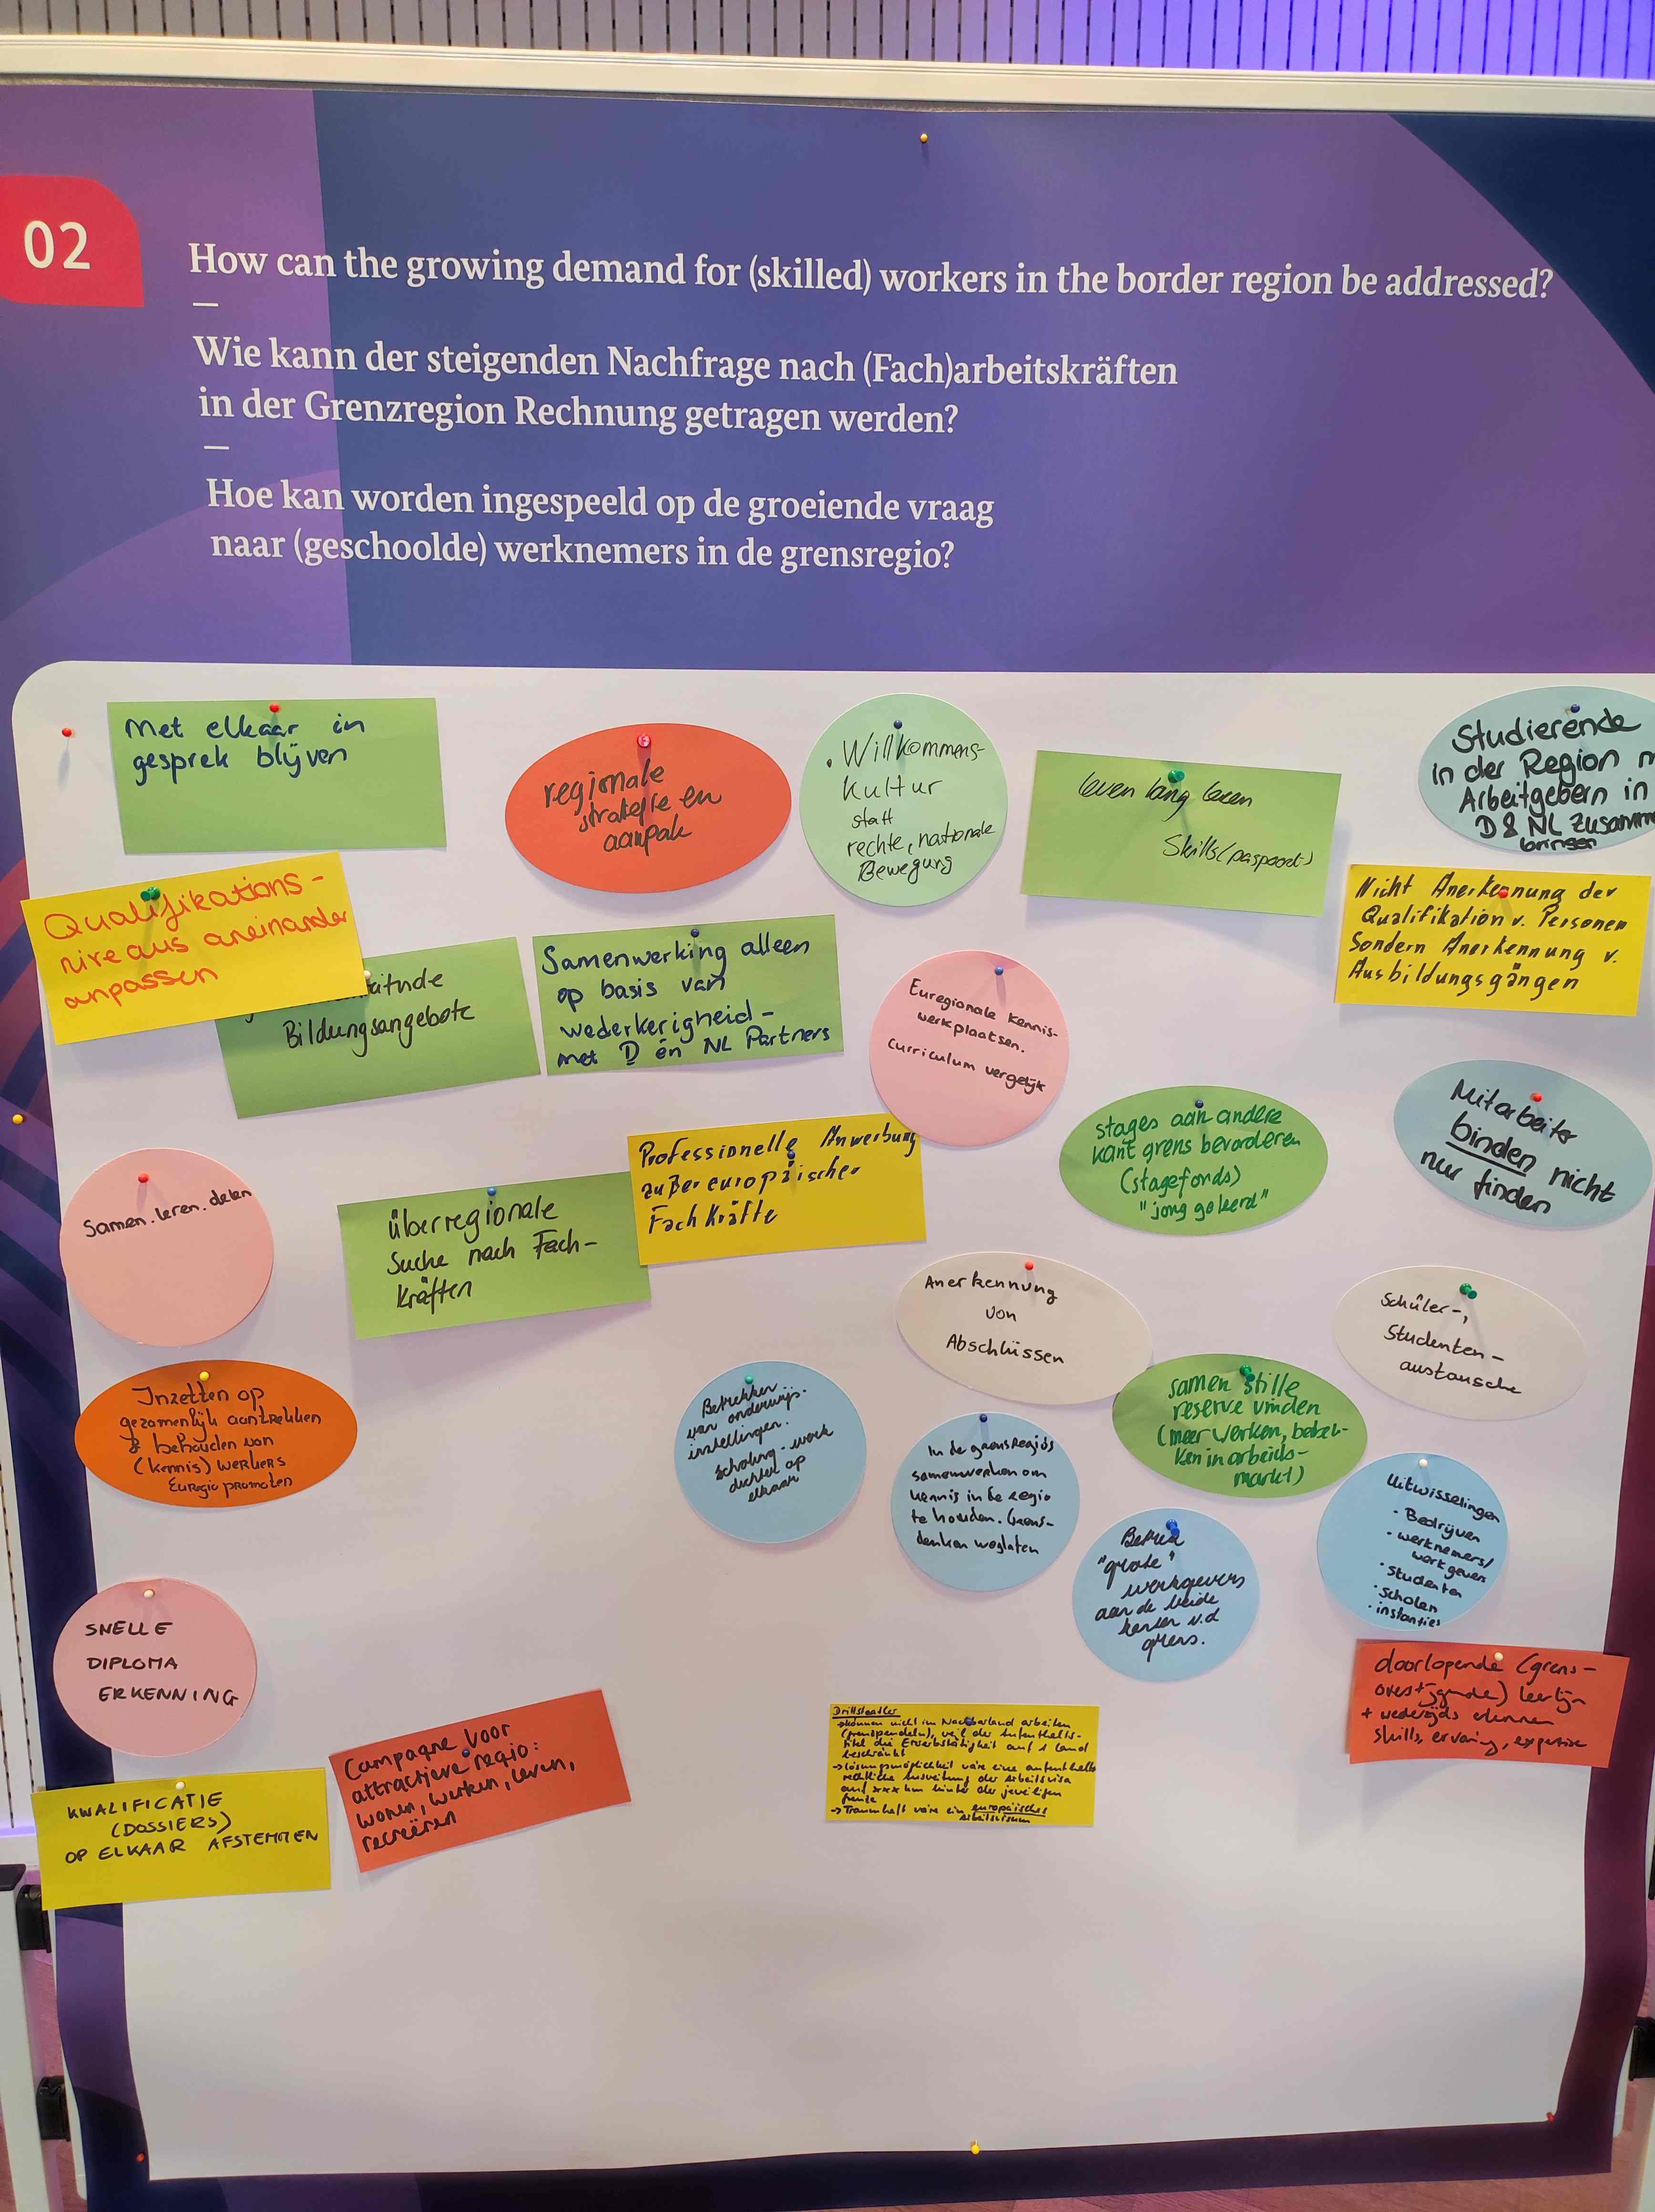 02
How can the growing demand for (skilled) workers in the border region be addressed?
Wie kann der steigenden Nachfrage nach (Fach)arbeitskräften
in der Grenzregion Rechnung getragen werden?
Hoe kan worden ingespeeld op de groeiende vraag
naar (geschoolde) werknemers in de grensregio?
Met elkaar in
gesprek blijven
regionale
strategie en
aanpak
. Willkommens-
kultur
statt
rechte, nationale
Bewegung
leven lang leren
Skills (paspoort)
Studierende
in der Region
Arbeitgebern in
D & NL
bringen
Qualifikations-
niveaus aneinander
anpassen
Bildungsangebote
Samenwerking alleen
op basis van
wederkerigheid -
met D én NL Partners
Euregionale kennis-
werkplaatsen.
Curriculum vergelijk
Nicht Anerkennung der
Qualifikation v. Personen
Sondern Anerkennung v.
Ausbildungsgängen
Samen. leren. delen
überregionale
Suche nach Fach-
kräften
Professionelle Anwerbung
außereuropäischer
Fachkräfte
stages aan andere
kant grens bevorderen
(stagefonds)
"jong geleerd"
Mitarbeiter
binden nicht
nur finden
Anerkennung
von
Abschlüssen
Schüler-,
Studenten-
austausche
Inzetten op
gezamenlijk aantrekken
& behouden van
(kennis) werkers
Euregio promoten
Betrekken
van onderwijs-
instellingen.
scholing - werk
dichter op
elkaar
In de grensregio's
samenwerken om
kennis in de regio
te houden. Grens-
denken weglaten
samen stille
reserve vinden
(meer werken, betrek-
ken in arbeids-
markt)
Betrek
"grote"
werkgevers
aan de beide
kanten v.d
grens.
Uitwisselingen
· Bedrijven
· werknemers/
werkgevers
· studenten
· scholen
· instanties
SNELLE
DIPLOMA
ERKENNING
KWALIFICATIE
(DOSSIERS)
OP ELKAAR AFSTEMMEN
Campagne voor
attractieve regio:
wonen, werken, leven,
recreëren
Drittstaatler
→ können nicht im Nachbarland arbeiten
(grenzpendeln), weil der Aufenthalts-
titel die Erwerbstätigkeit auf 1 Land
beschränkt
→ Lösungsmöglichkeit wäre eine aufenthalts
rechtliche Ausweitung der Arbeitsvisa
auf xxx km hinter der jeweiligen
Grenze
→ Traumhaft wäre ein europäisches
Arbeitsvisum
doorlopende (grens-
overstijgende) leerlijn
+ wederzijds erkennen
skills, ervaring, expertise